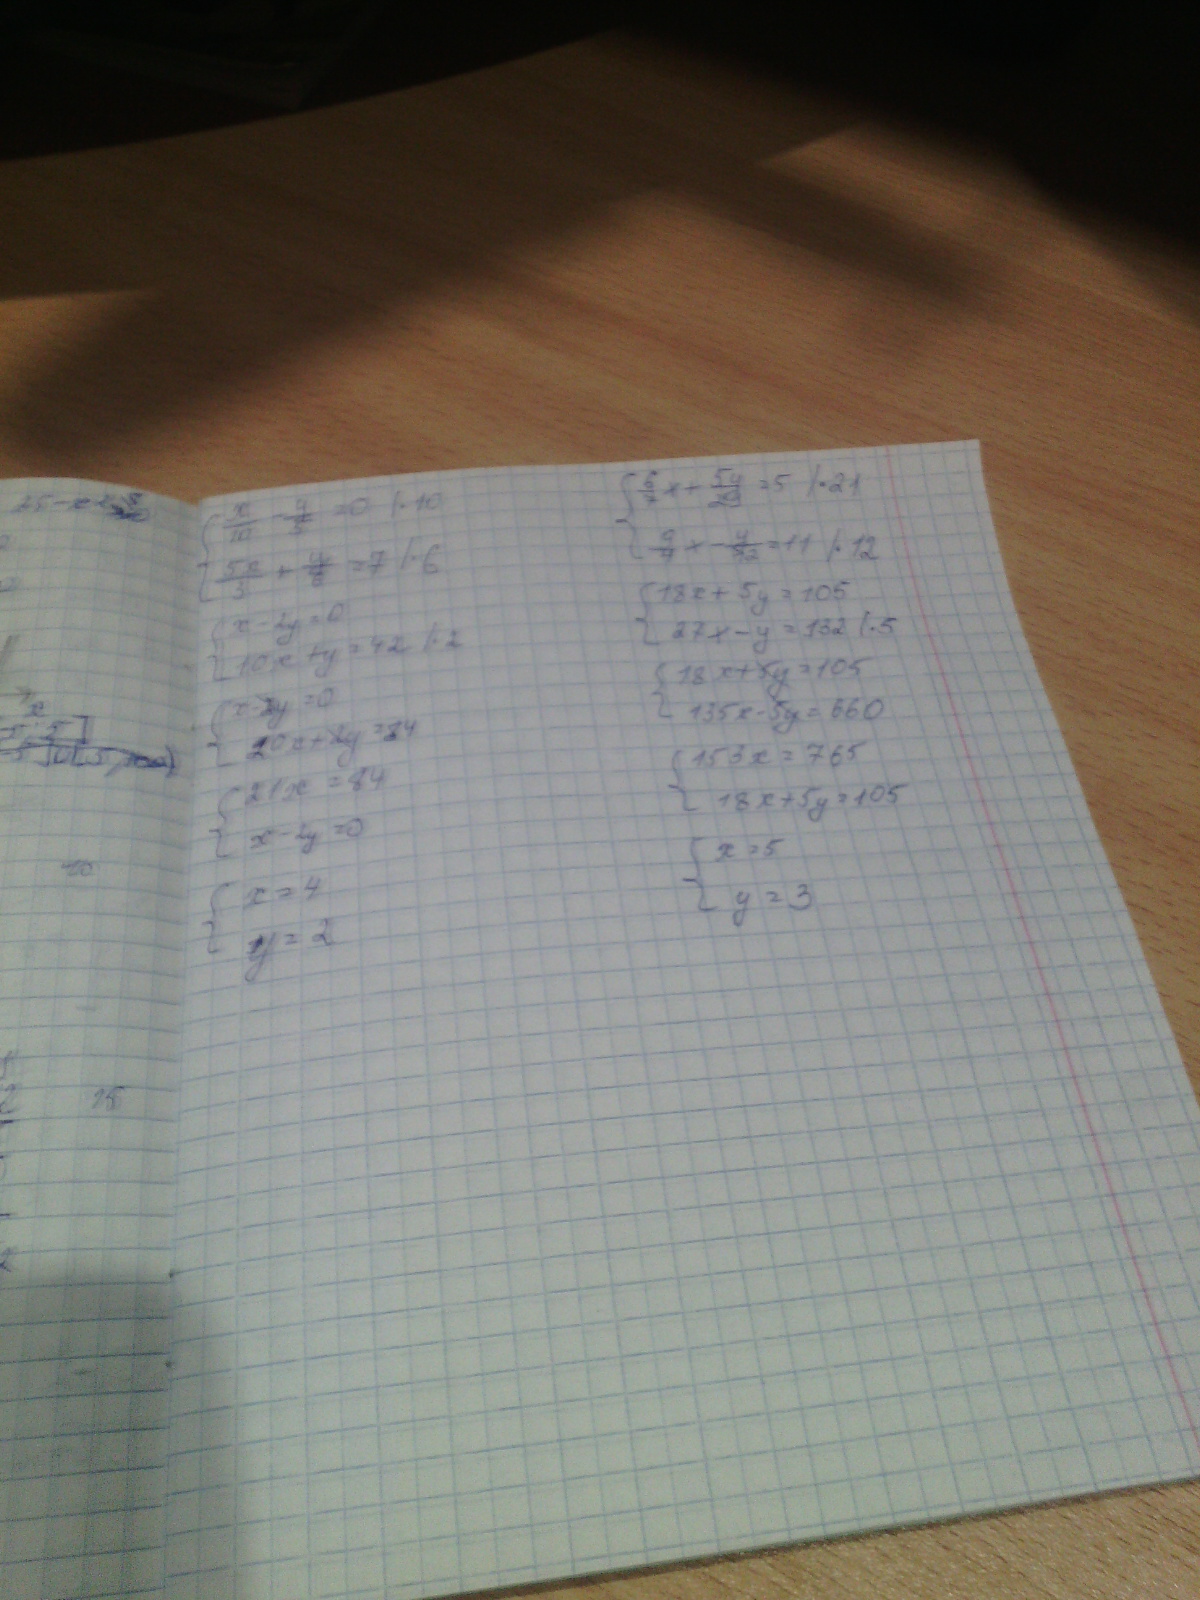 x/10 - y/5 = 0 |·10
5x/3 + y/6 = 7 |·6
x - 2y = 0
10x + y = 42 |·2
x - 2y = 0
20x + 2y = 84
21x = 84
x - 2y = 0
x = 4
y = 2
6/7 x + 5y/21 = 5 |·21
9/4 x - y/12 = 11 |·12
18x + 5y = 105
27x - y = 132 |·5
18x + 5y = 105
135x - 5y = 660
153x = 765
18x + 5y = 105
x = 5
y = 3
15